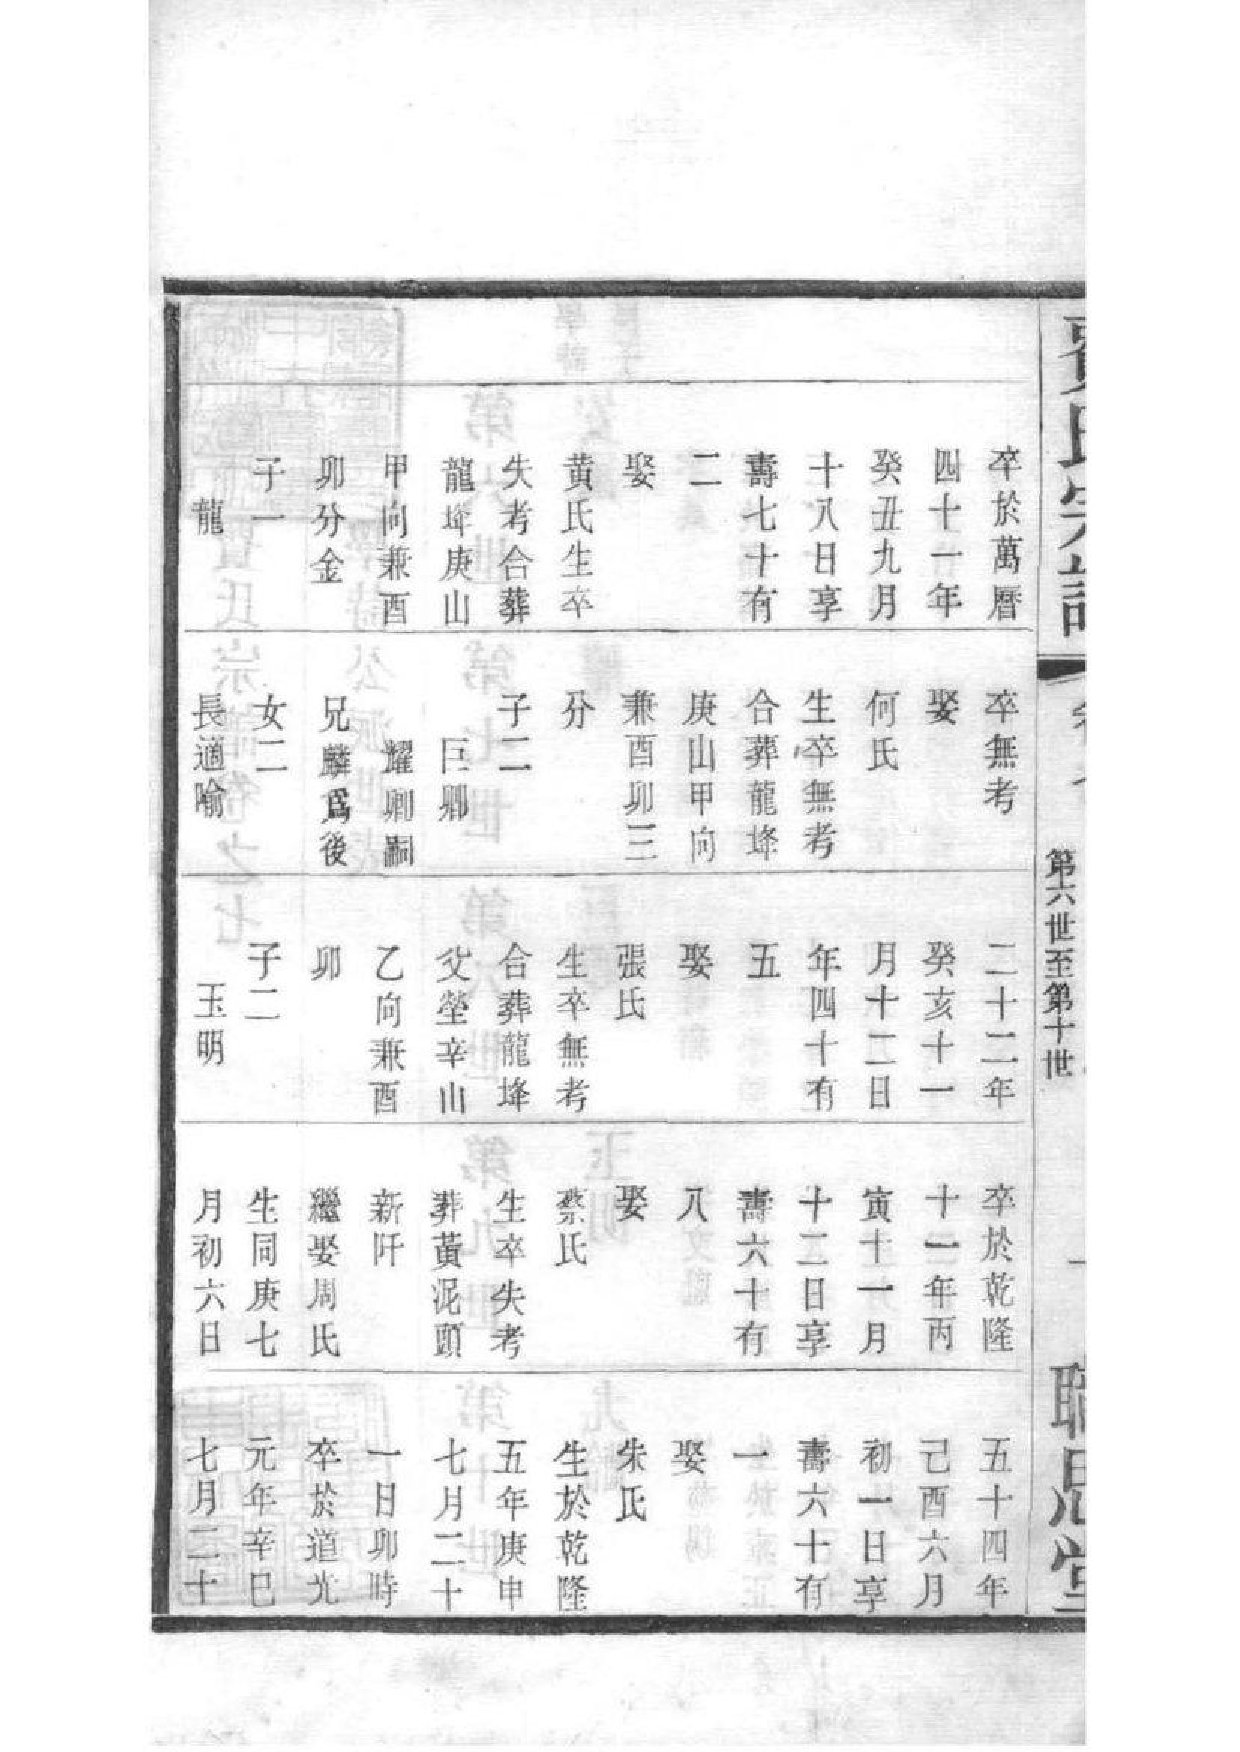 賈氏宗譜
第六世至第十世
一
聰思堂
卒於萬曆
四十一年
癸丑九月
十八日享
壽七十有
二
娶
黃氏生卒
失考合葬
龍埄庚山
甲向兼酉
卯分金
子一
龍
卒無考
娶
何氏
生卒無考
合葬龍埄
庚山甲向
兼酉卯三
分
子二
巨卿
耀卿嗣
兄麟爲後
女二
長適喻
二十二年
癸亥十一
月十二日
年四十有
五
娶
張氏
生卒無考
合葬龍埄
父塋辛山
乙向兼酉
卯
子二
玉明
卒於乾隆
十一年丙
寅十一月
十二日享
壽六十有
八
娶
蔡氏
生卒失考
葬黃泥頭
新阡
繼娶周氏
生同庚七
月初六日
五十四年
己酉六月
初一日享
壽六十有
一
娶
朱氏
生於乾隆
五年庚申
七月二十
一日卯時
卒於道光
元年辛巳
七月二十